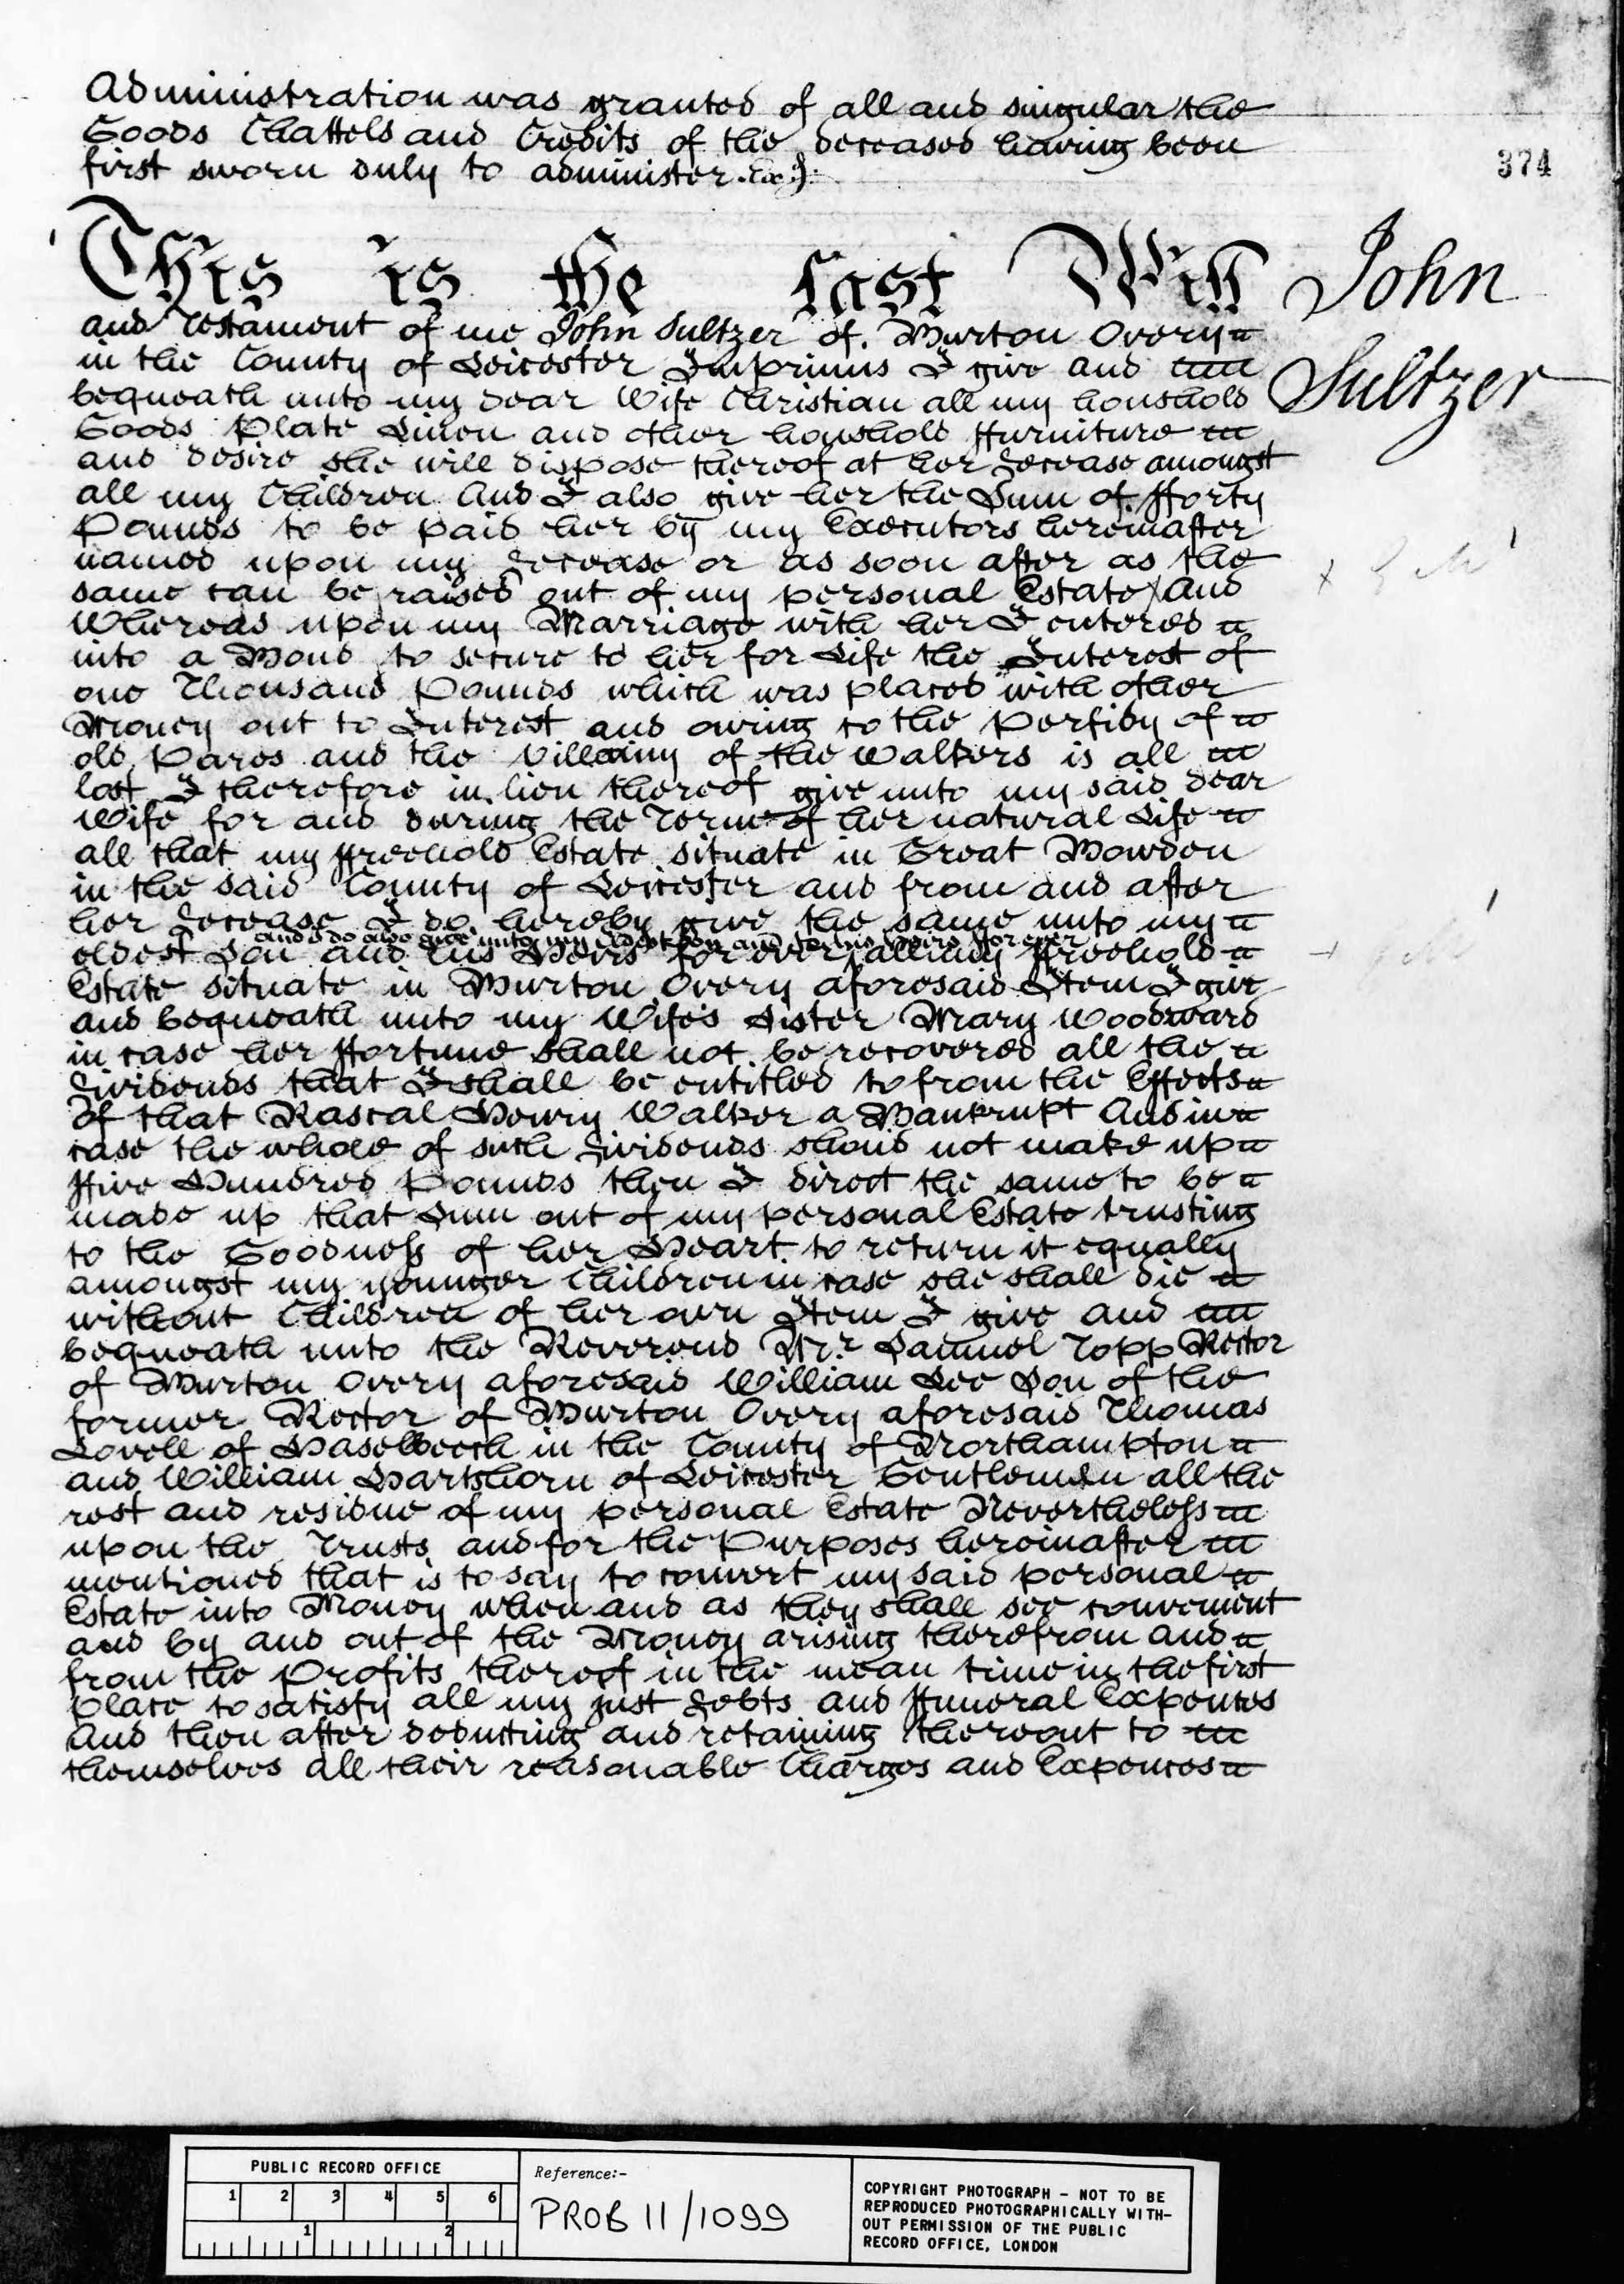 Administration was granted of all and singular the
Goods Chattels and Credits of the deceased having been
first sworn duly to administer.
374
This is the Last Will
John
Sultzer
and Testament of me John Sultzer of Burton Overy
in the County of Leicester Imprimis I give and
bequeath unto my dear Wife Christian all my houshold
Goods Plate Linen and other houshold ffurniture
and desire she will dispose thereof at her Decease amongst
all my Children And I also give her the Sum of fforty
Pounds to be paid her by my Executors hereinafter
named upon my Decease or as soon after as the
same can be raised out of my personal Estate And
Whereas upon my Marriage with her I entered
into a Bond to secure to her for Life the Interest of
one Thousand Pounds which was placed with other
Money out to Interest and owing to the Perfidy of
old Pares and the Villainy of the Walkers is all
lost I therefore in lieu thereof give unto my said dear
Wife for and during the Term of her natural Life
all that my ffreehold Estate situate in Great Bowden
in the said County of Leicester and from and after
her Decease I do hereby give the same unto my
and I do also give unto my eldest Son and to his Heirs for ever
eldest Son and his Heirs for ever all my ffreehold
Estate situate in Burton Overy aforesaid Item I give
and bequeath unto my Wife's Sister Mary Woodward
in case her ffortune shall not be recovered all the
Dividends that I shall be entitled to from the Effects
of that Rascal Henry Walker a Bankrupt And in
case the whole of such Dividends shoud not make up
ffive Hundred Pounds then I direct the same to be
made up that Sum out of my personal Estate trusting
to the Goodness of her Heart to return it equally
amongst my younger Children in case she shall die
without Children of her own Item I give and
bequeath unto the Reverend Mr. Samuel Topp Rector
of Burton Overy aforesaid William Lee Son of the
former Rector of Burton Overy aforesaid Thomas
Lovell of Haselbeech in the County of Northampton
and William Hartshorn of Leicester Gentlemen all the
rest and residue of my personal Estate Nevertheless
upon the Trusts and for the Purposes hereinafter
mentioned that is to say to convert my said personal
Estate into Money when and as they shall see convenient
and by and out of the Money arising therefrom and
from the Profits thereof in the mean time in the first
place to satisfy all my just Debts and ffuneral Expences
And then after deducting and retaining thereout to
themselves all their reasonable Charges and Expences
PUBLIC RECORD OFFICE
1 2 3 4 5 6
1 2
Reference:-
PROB 11/1099
COPYRIGHT PHOTOGRAPH - NOT TO BE
REPRODUCED PHOTOGRAPHICALLY WITH-
OUT PERMISSION OF THE PUBLIC
RECORD OFFICE, LONDON